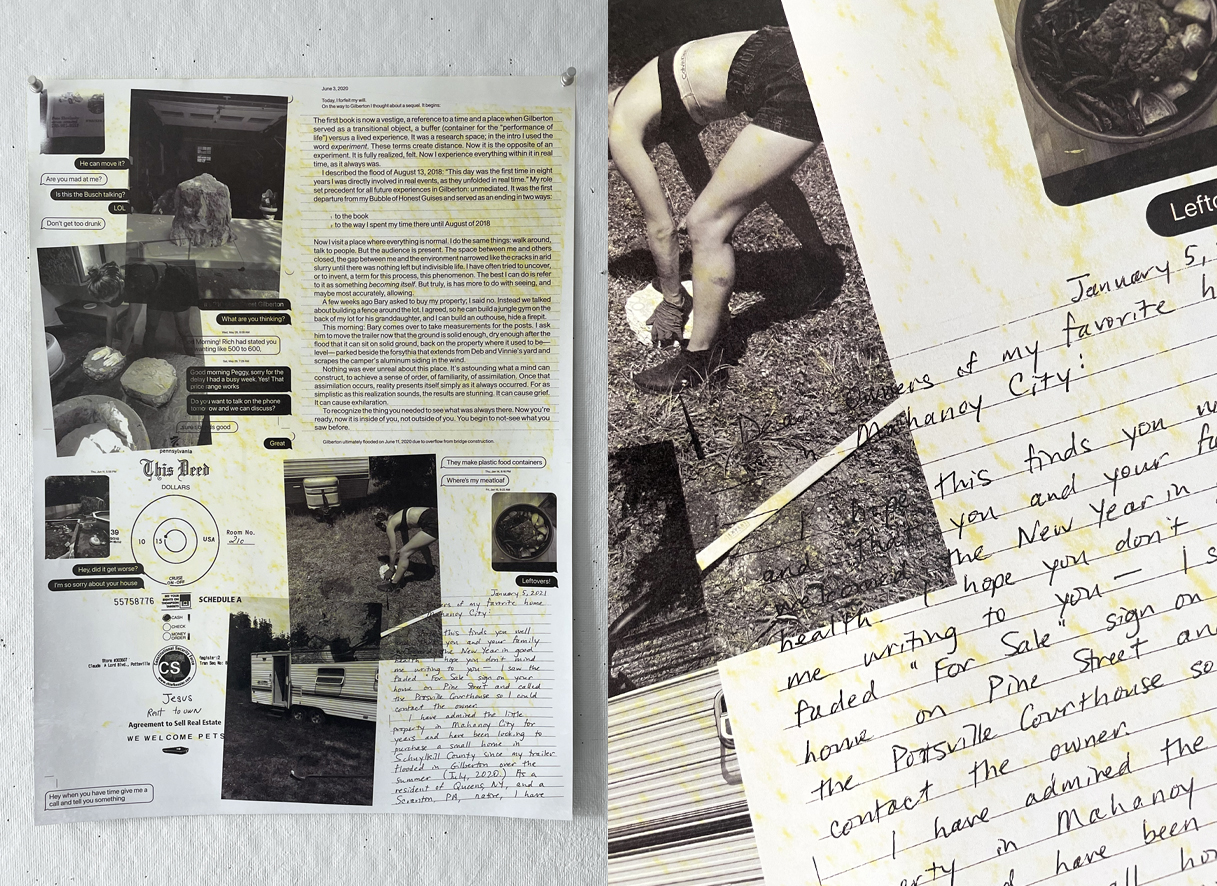 June 3, 2020
Today, I forfeit my will.
On the way to Gilberton I thought about a sequel. It begins:
The first book is now a vestige, a reference to a time and a place when Gilberton
served as a transitional object, a buffer (container for the "performance of
life") versus a lived experience. It was a research space; in the intro I used the
word experiment. These terms create distance. Now it is the opposite of an
experiment. It is fully realized, felt. Now I experience everything within it in real
time, as it always was.
I described the flood of August 13, 2018: "This day was the first time in eight
years I was directly involved in real events, as they unfolded in real time." My role
set precedent for all future experiences in Gilberton: unmediated. It was the first
departure from my Bubble of Honest Guises and served as an ending in two ways:
to the book
to the way I spent my time there until August of 2018
Now I visit a place where everything is normal. I do the same things: walk around,
talk to people. But the audience is present. The space between me and others
closed, the gap between me and the environment narrowed like the cracks in arid
slurry until there was nothing left but indivisible life. I have often tried to uncover,
or to invent, a term for this process, this phenomenon. The best I can do is refer
to it as something becoming itself. But truly, is has more to do with seeing, and
maybe most accurately, allowing.
A few weeks ago Bary asked to buy my property; I said no. Instead we talked
about building a fence around the lot. I agreed, so he can build a jungle gym on the
back of my lot for his granddaughter, and I can build an outhouse, hide a firepit.
This morning: Bary comes over to take measurements for the posts. I ask
him to move the trailer now that the ground is solid enough, dry enough after the
flood that it can sit on solid ground, back on the property where it used to be—
level— parked beside the forsythia that extends from Deb and Vinnie's yard and
scrapes the camper's aluminum siding in the wind.
Nothing was ever unreal about this place. It's astounding what a mind can
construct, to achieve a sense of order, of familiarity, of assimilation. Once that
assimilation occurs, reality presents itself simply as it always occurred. For as
simplistic as this realization sounds, the results are stunning. It can cause grief.
It can cause exhilaration.
To recognize the thing you needed to see what was always there. Now you're
ready, now it is inside of you, not outside of you. You begin to not-see what you
saw before.
Gilberton ultimately flooded on June 11, 2020 due to overflow from bridge construction.
He can move it?
Are you mad at me?
Is this the Busch talking?
LOL
Don't get too drunk
Gilberton
What are you thinking?
Morning! Rich had stated you
wanting like 500 to 600,
Good morning Peggy, sorry for the
delay I had a busy week. Yes! That
price range works
Do you want to talk on the phone
tomorrow and we can discuss?
good
Great
pennsylvania
This Deed
DOLLARS
39
10
15
USA
Room No.
CRUISE
ON-OFF
Hey, did it get worse?
I'm so sorry about your house
55758776
SCHEDULE A
CASH
CHECK
MONEY
ORDER
CS
Jesus
Rent to own
Agreement to Sell Real Estate
WE WELCOME PETS
Hey when you have time give me a
call and tell you something
They make plastic food containers
Where's my meatloaf
Leftovers!
January 5, 2021
ers of my favorite home
Mahanoy City:
this finds you well
you and your family
the New Year in good
health. I hope you don't mind
me writing to you— I saw the
faded "For Sale" sign on your
home on Pine Street and called
the Pottsville Courthouse so I could
contact the owner.
I have admired the little
property in Mahanoy City for
years and have been looking to
purchase a small home in
Schuylkill County since my trailer
flooded in Gilberton over the
summer (July, 2020.) As a
resident of Queens, NY, and a
Scranton, PA, native, I have
Lefto
January 5,
owners of my favorite h
Mahanoy City:
I hope
this finds you w
you and your fa
the New Year in
health. I hope you don't
me writing to you — I s
faded "For Sale" sign on
home on Pine Street an
the Pottsville Courthouse so
contact the owner.
I have admired the
erty in Mahanoy
have been